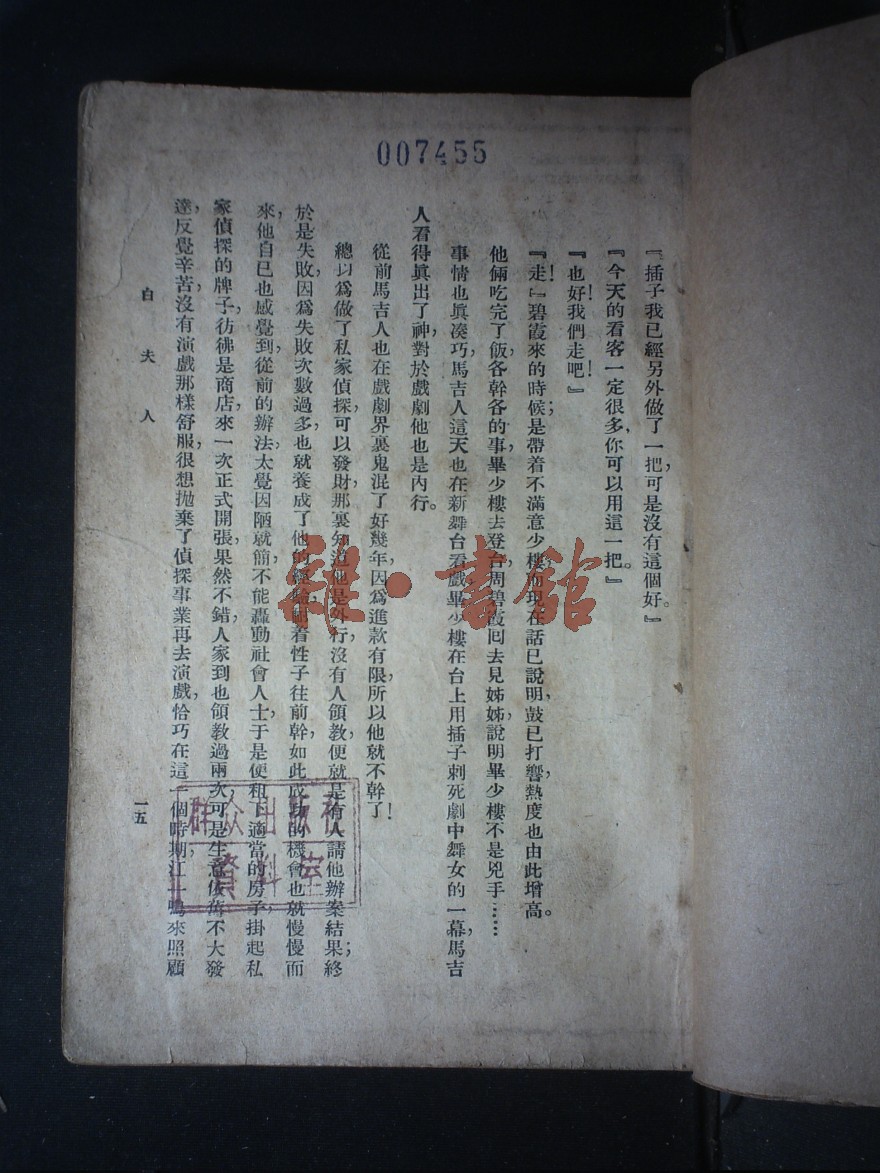 007455
『插子我已經另外做了一把，可是沒有這個好。』
『今天的看客一定很多，你可以用這一把。』
『也好！我們走吧！』
『走！』碧霞來的時候；是帶着不滿意少樓，而現在話已說明，鼓已打響，熱度也由此增高。
他倆吃完了飯，各幹各的事，畢少樓去登台，周碧霞囘去見姊姊，說明畢少樓不是兇手……
事情也眞湊巧，馬吉人這天也在新舞台看戲，畢少樓在台上用插子刺死劇中舞女的一幕，馬吉
人看得眞出了神，對於戲劇他也是內行。
從前馬吉人也在戲劇界裏鬼混了好幾年，因爲進款有限，所以他就不幹了！
總以爲做了私家偵探，可以發財，那裏知道他是外行，沒有人領教，便就是有人請他辦案，結果終
於是失敗，因爲失敗次數過多，也就養成了他的經驗，耐着性子往前幹，如此成功的機會也就慢慢而
來，他自已也感覺到，從前的辦法太覺因陋就簡，不能轟動社會人士，于是便租下適當的房子，掛起私
家偵探的牌子，彷彿是商店，來一次正式開張，果然不錯，人家到也領教過兩次，可是生意依舊不大發
達，反覺辛苦，沒有演戲那樣舒服，很想拋棄了偵探事業再去演戲，恰巧在這一個時期，江一鳴來照顧
白夫人
一五
群众出版社
資料室
雜·書館